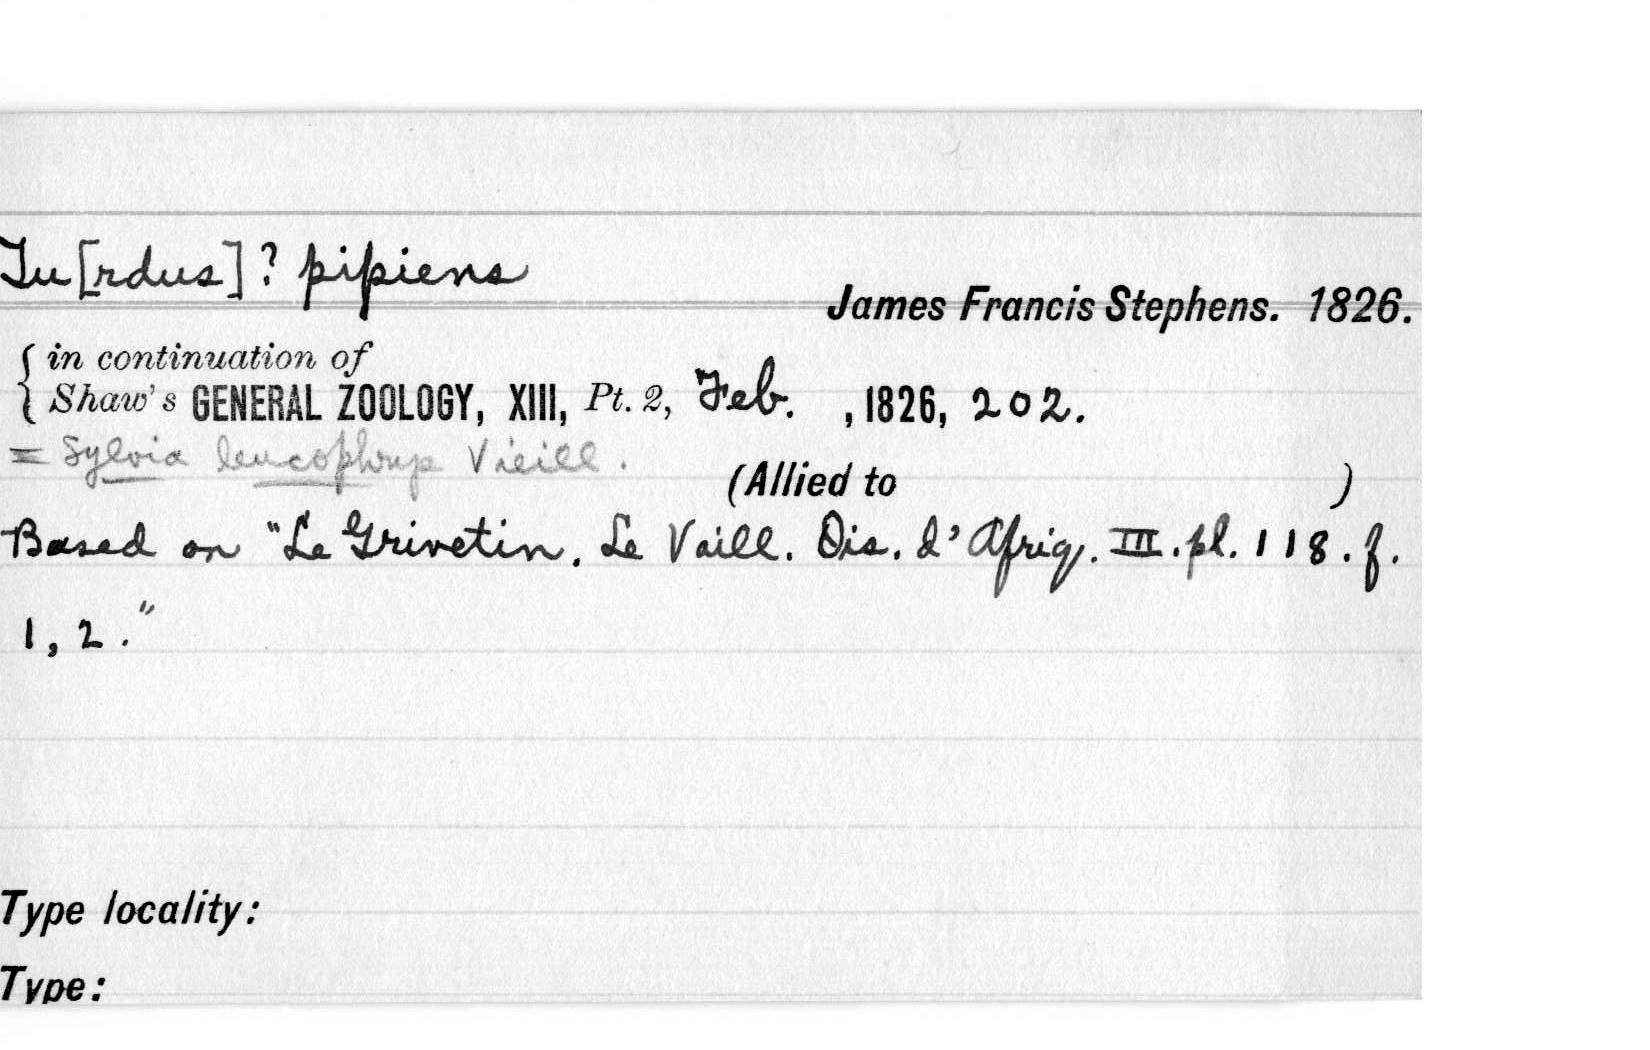 Tu[rdus]? pipiens
James Francis Stephens. 1826.
in continuation of
Shaw's GENERAL ZOOLOGY, XIII, Pt. 2, Feb. , 1826, 202.
= Sylvia leucophrys Vieill.
(Allied to )
Based on "Le Grivetin. Le Vaill. Ois. d'Afriq. III. pl. 118. f.
1, 2."
Type locality:
Type: